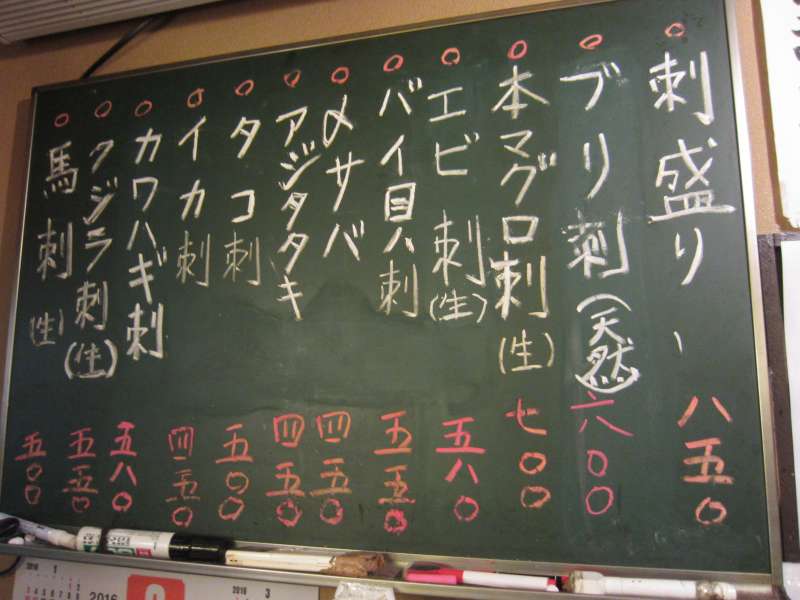 刺盛り 八五〇
ブリ刺(天然) 六〇〇
本マグロ刺(生) 七〇〇
エビ刺(生) 五八〇
バイ貝刺 五五〇
〆サバ 四五〇
アジタタキ 四五〇
タコ刺 五〇〇
イカ刺 四五〇
カワハギ刺 五八〇
クジラ刺(生) 五五〇
馬刺(生) 五〇〇
2016
2016
2016 3